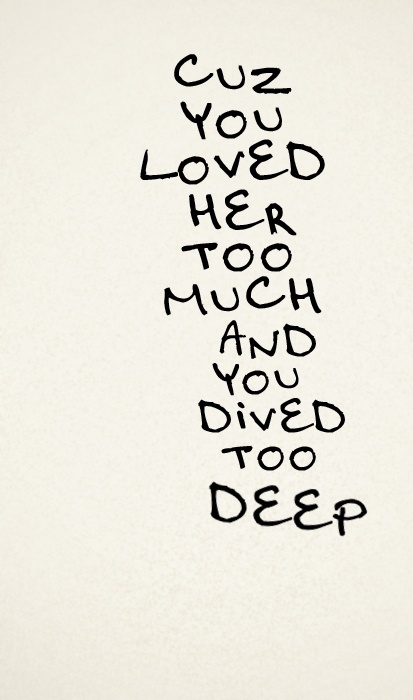 CUZ
YOU
LOVED
HER
TOO
MUCH
AND
YOU
DiVED
TOO
DEEP